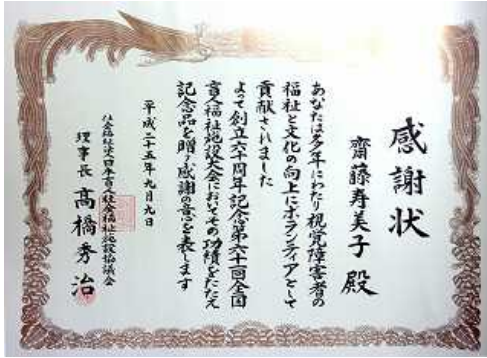 感謝状
齋藤寿美子 殿
あなたは多年にわたり視覚障害者の
福祉と文化の向上にボランティアとして
貢献されました
よって創立六十周年記念第六十一回全国
盲人福祉施設大会においてその功績をたたえ
記念品を贈り感謝の意を表します
平成二十五年九月九日
社会福祉法人日本盲人社会福祉施設協議会
理事長 髙橋秀治